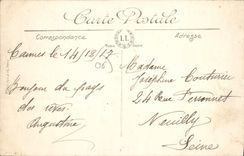 Carte Postale
Correspondance
Adresse
LL
Cannes le 14/12/12
Bonjour du pays
des roses
Augustine
Madame
Joséphine Couturier
24 Rue Perronnet
Neuilly
Seine